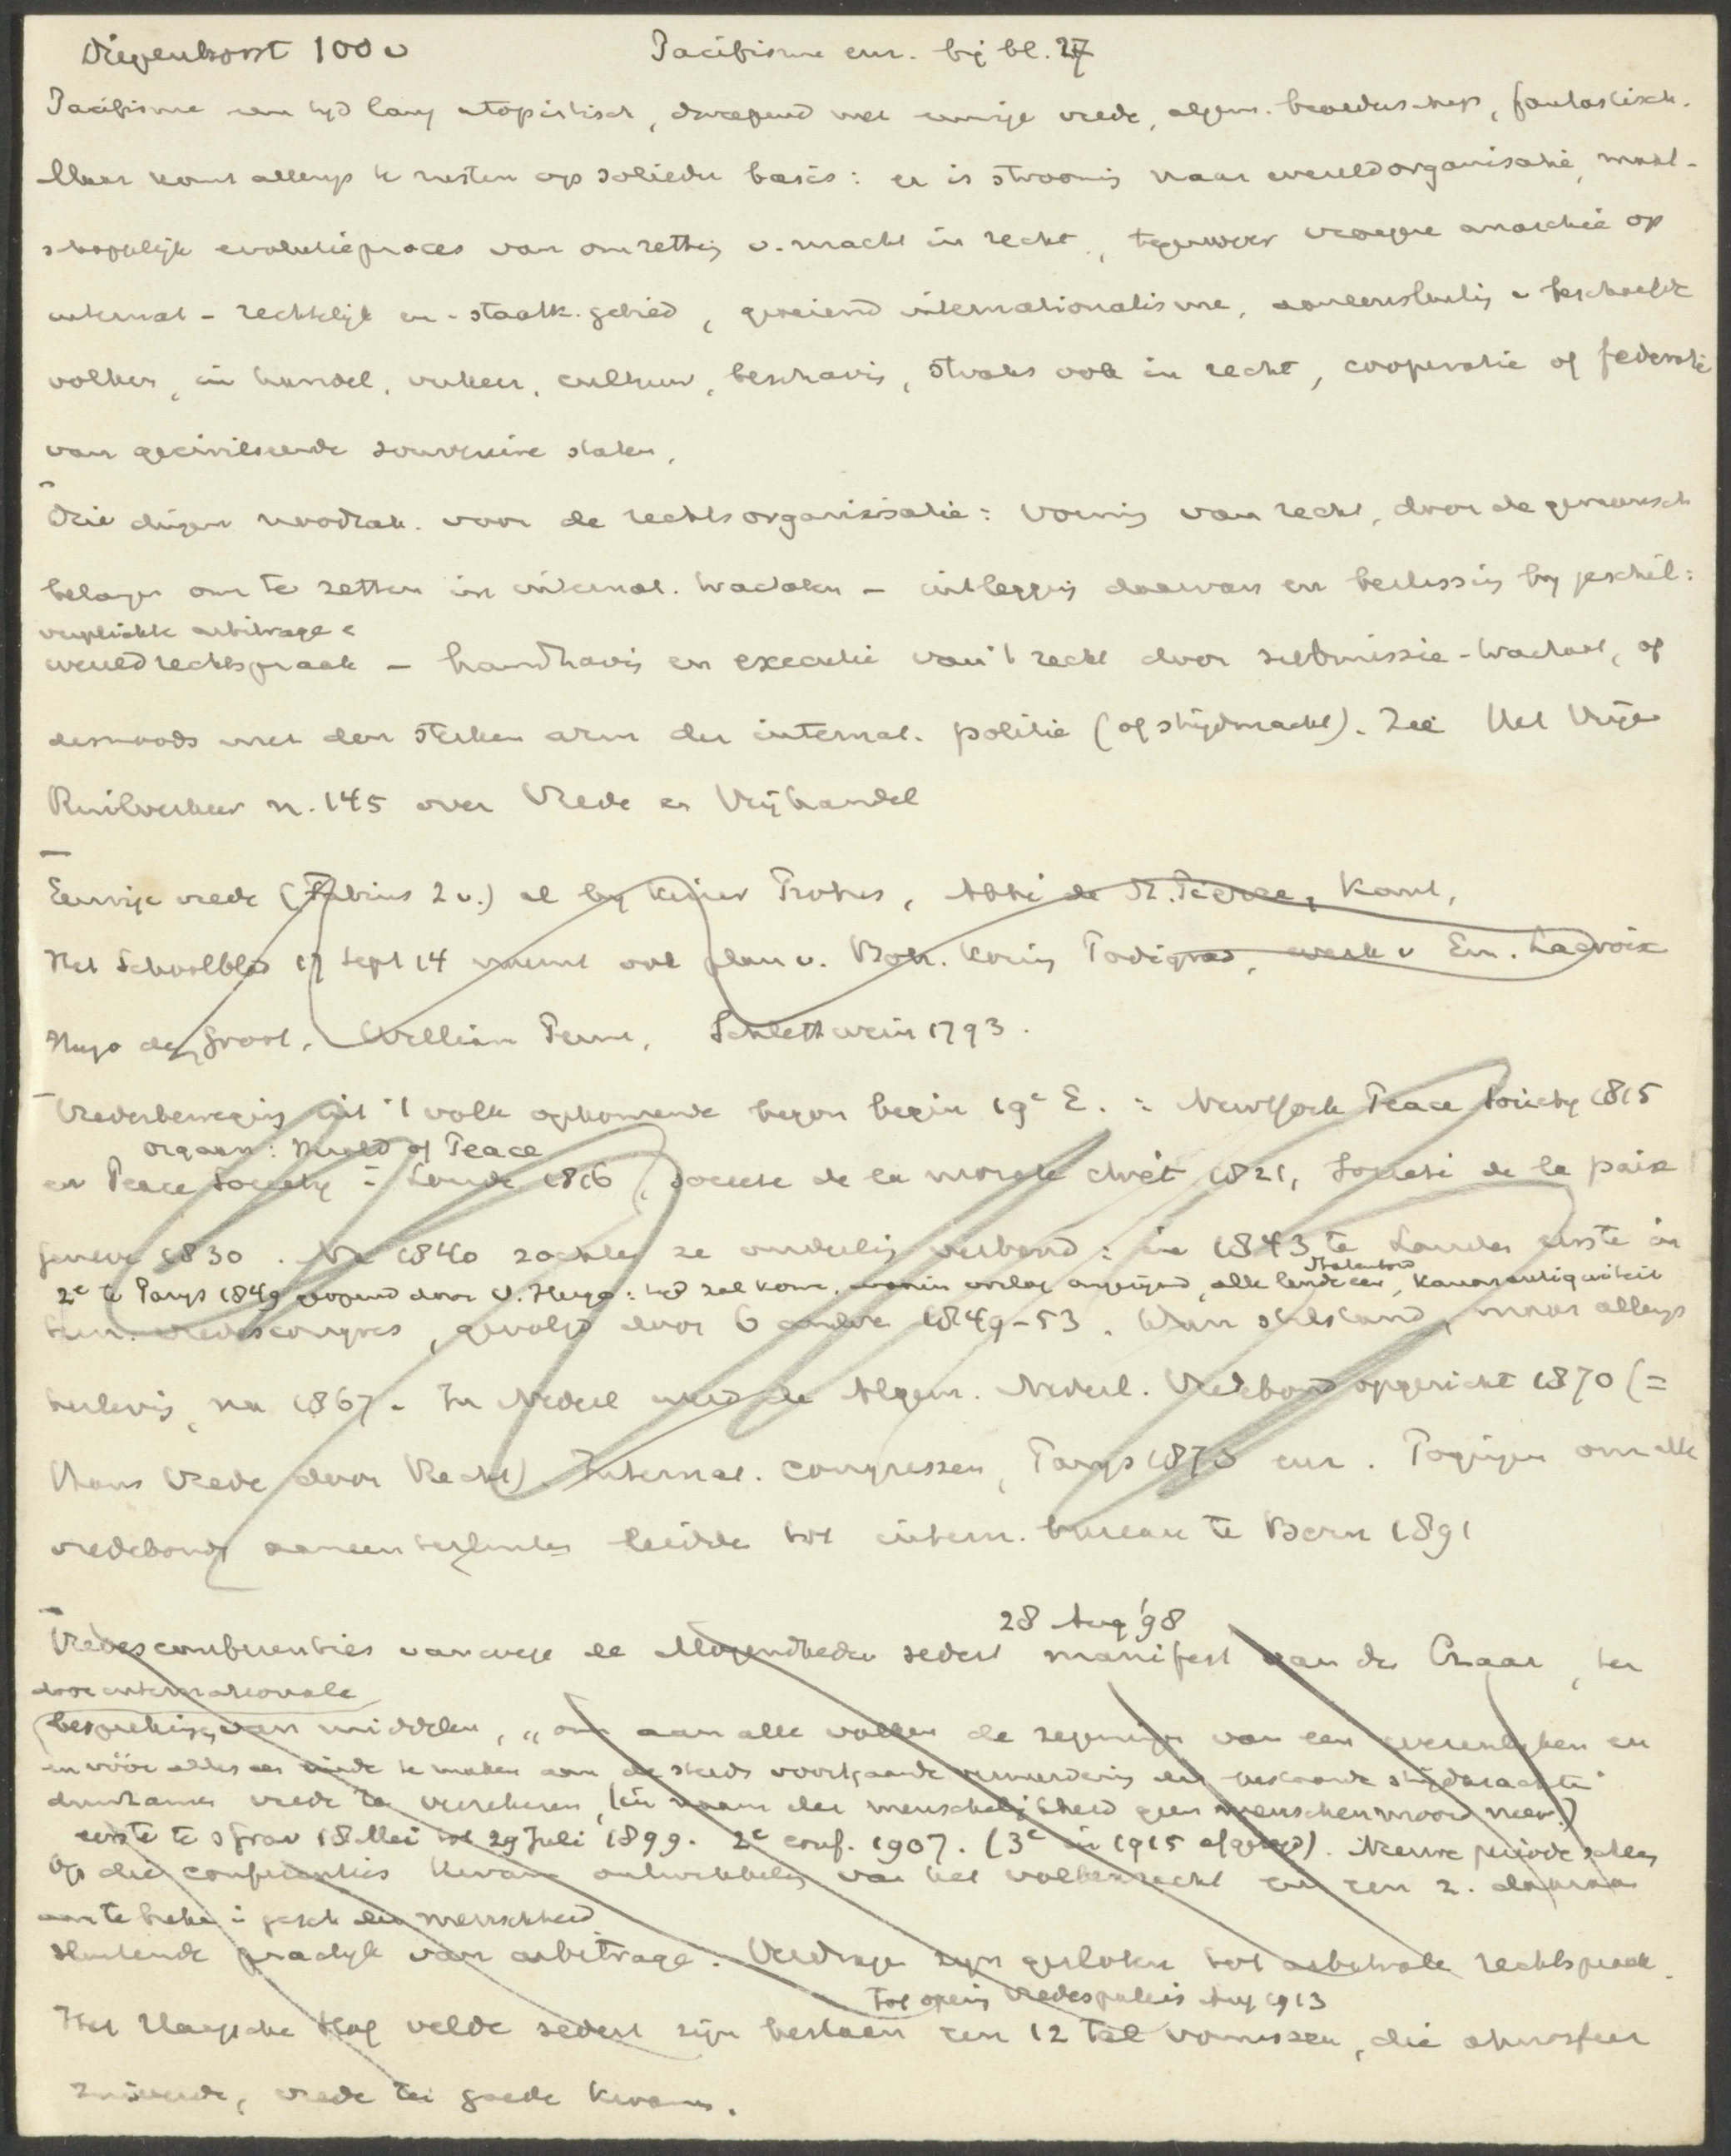 Diepenhorst 100 v Pacifisme enz. bij bl. 27
Pacifisme een tijd lang utopistisch, dweepend met eeuwige vrede, algem. broederschap, fantastisch.
Maar komt allengs te rusten op solieder basis: er is strooming naar wereldorganisatie, maat-
schappelijk evolutieproces van omzetting v. macht in recht, tegenover vroegere anarchie op
internat - rechtelijk en - staatk. gebied, groeiend internationalisme, aaneensluiting v beschaafde
volken, in handel, verkeer, cultuur, beschaving, straks ook in recht, cooperatie of federatie
van geciviliseerde souvereine staten.
Drie dingen noodzak. voor de rechtsorganisatie: vorming van recht, door de gemeensch
belangen om te zetten in internat. tractaten - uitlegging daarvan en beslissing bij geschil:
verplichte arbitrage &
wereldrechtspraak - handhaving en executie van 't recht door submissie-tractaat, of
desnoods met den sterken arm der internat. politie (of strijdmacht). Zie Het Vrije
Ruilverkeer n. 145 over Vrede en Vrijhandel
Eeuwige vrede (Fabius 2 v.) al bij Keizer Probus, Abbé de St. Pierre, Kant,
Het Schoolblad 17 Sept 14 noemt ook plan v. Boh. Koning Podiebrad, werk v Em. Lacroix
Hugo de Groot, William Penn, Schlettwein 1793.
Vredesbeweging uit 't volk opkomende begon begin 19e E. : NewYork Peace Society 1815
orgaan: Herald of Peace
en Peace Society in Londen 1816, Societe de la morale chrét 1821, Societé de la paix
Geneve 1830. Na 1840 zochten ze onderling verband: in 1843 te Londen eerste in
2e te Parys 1849 geopend door V. Hugo: tijd zal komen, waarin oorlog ongerijmd, alle landen een Statenbond, kanon antiquiteit
tern. vredescongres, gevolgd door 6 andere 1849-53. Toen stilstand, maar allengs
herleving na 1867. In Nederl werd de Algem. Nederl. Vredebond opgericht 1870 (=
thans Vrede door Recht). Internat. congressen, Parys 1878 enz. Pogingen om alle
vredebonden aaneen te sluiten leidde tot intern. bureau te Bern 1891
28 Aug '98
Vredesconferenties vanwege de Mogendheden sedert manifest van de Czaar, ter
door internationale
bespreking van middelen, „om aan alle volken de zegeningen van een wezenlijken en
en vóór alles een einde te maken aan de steeds voortgaande vermeerdering der bestaande strijdkrachten"
duurzamen vrede te verzekeren, (in naam der menschelijkheid geen menschenmoord meer!)
eerste te sGrav 18 Mei tot 29 Juli 1899. 2e conf. 1907. (3e in 1915 afgezegd). Nieuwe periode scheen
Op die conferenties kwam ontwikkeling van het volkenrecht en een z. daaraan
aan te breken in gesch der menschheid
sluitende practijk van arbitrage. Verdragen zijn gesloten tot arbitrale rechtspraak.
tot opening Vredespaleis Aug 1913
Het Haagsche Hof velde sedert zijn bestaan een 12 tal vonnissen, die atmosfeer
zuiverde, vrede ten goede kwam.